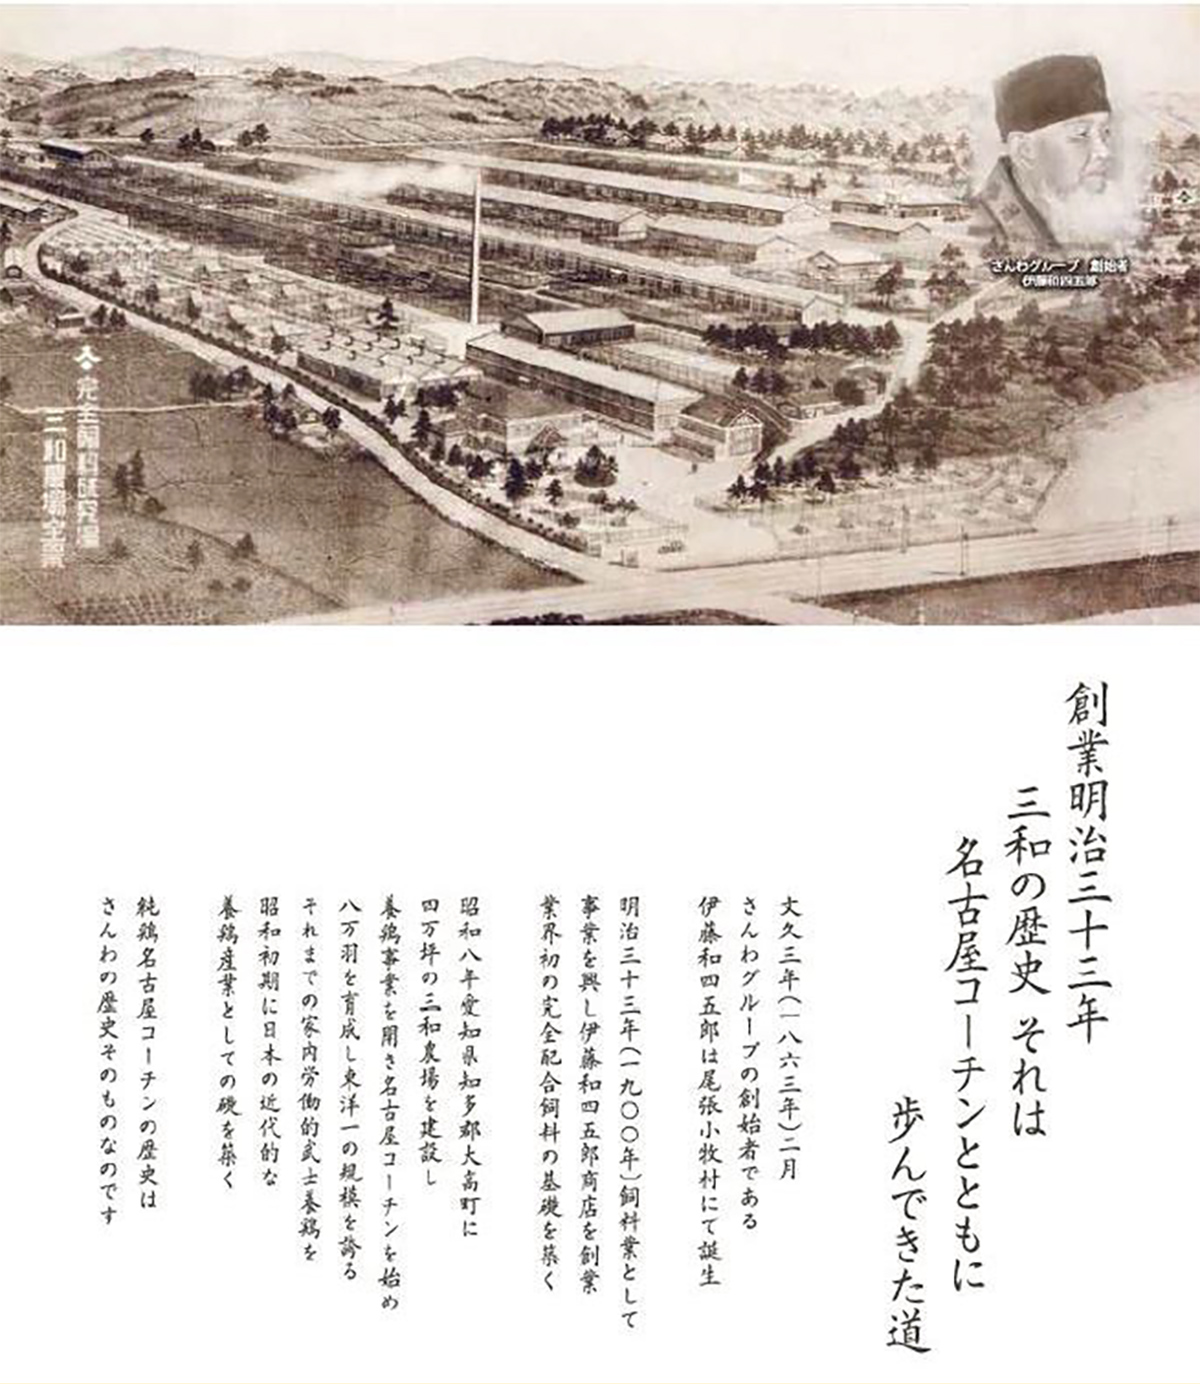 さんわグループ 創始者
伊藤和四五郎
完全飼料研究場
三和農場全景
創業明治三十三年
三和の歴史 それは
名古屋コーチンとともに
歩んできた道
文久三年(一八六三年)二月
さんわグループの創始者である
伊藤和四五郎は尾張小牧村にて誕生
明治三十三年(一九〇〇年)飼料業として
事業を興し伊藤和四五郎商店を創業
業界初の完全配合飼料の基礎を築く
昭和八年愛知県知多郡大高町に
四万坪の三和農場を建設し
養鶏事業を開き名古屋コーチンを始め
八万羽を育成し東洋一の規模を誇る
それまでの家内労働的武士養鶏を
昭和初期に日本の近代的な
養鶏産業としての礎を築く
純鶏名古屋コーチンの歴史は
さんわの歴史そのものなのです